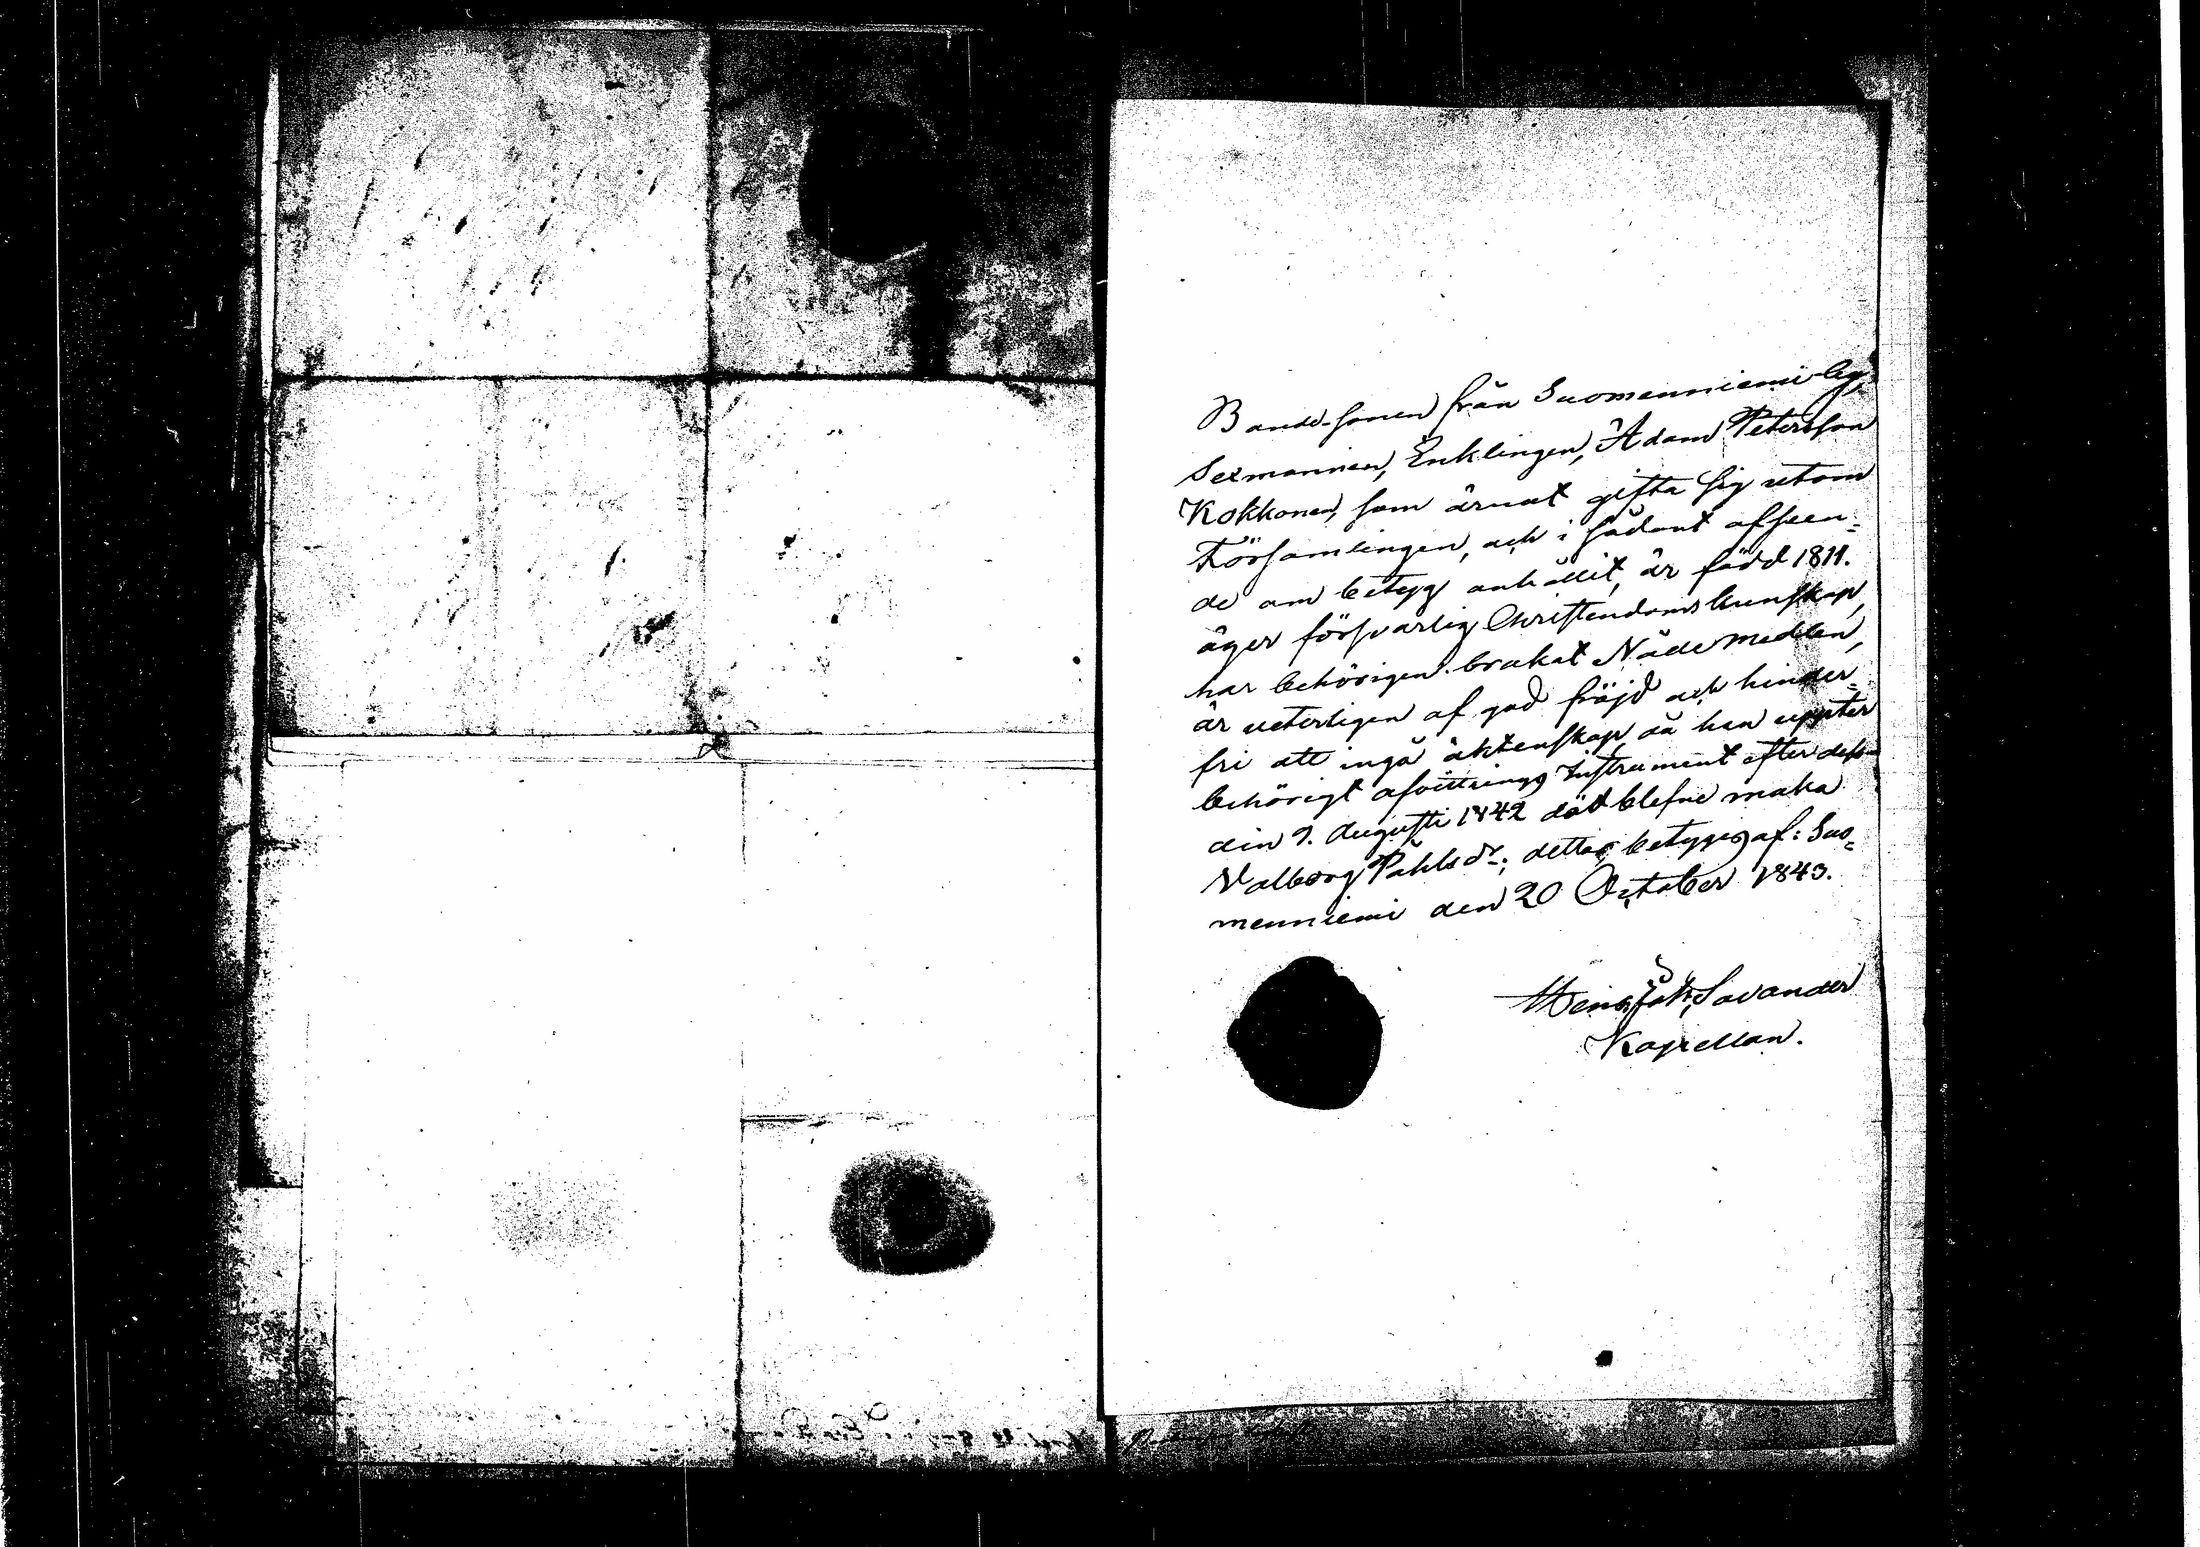 Bonde-sonen från Suomenniemi by,
Sexmannen, Enklingen, Adam Petersson
Kokkonen, som ärnat gifta sig utom
Församlingen, och i sådant afseen=
de om betyg anhållit, är född 1811.
äger försvarlig Christendoms kunskap,
har behörigen brukat Nådemedlen,
är veterligen af god fröjd och hinder=
fri att ingå äktenskap då han uppter
behörigt afvittrings Instrument efter dess
den 9. Augusti 1842 död blefne maka
Valborg Påhlsdr.; detta betygas af: Suo=
menniemi den 20 October 1843.
Henr. Joh. Savander
Kapellan.